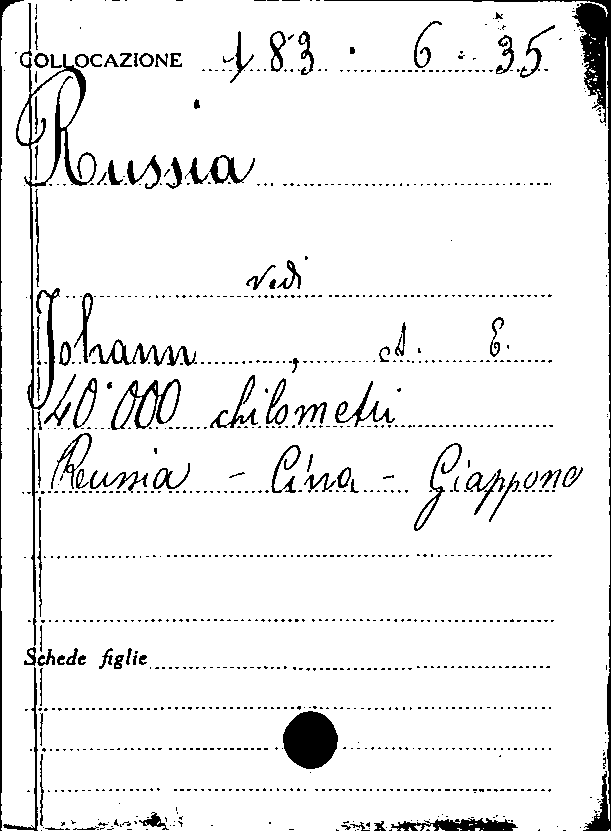 COLLOCAZIONE 183 . 6 . 35
Russia
vedi
Johann, A. E.
40'000 chilometri
Russia - Cina - Giappone
Schede figlie